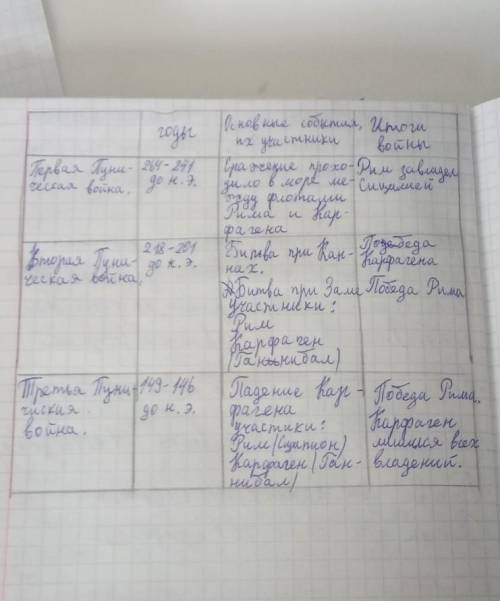 годы
Основные события,
их участники
Итоги
войны
Первая Пуни-
ческая война.
264-241
до н. э.
Сражение прохо-
дило в море ме-
жду флотами
Рима и Кар-
фагена
Рим завладел
Сицилией
Вторая Пуни-
ческая война.
218-201
до н. э.
Битва при Кан-
нах.
Битва при Заме
участники:
Рим
Карфаген
(Ганнибал)
Победа
Карфагена
Победа Рима
Третья Пуни-
чиская
война.
149-146
до н. э.
Падение Кар-
фагена
участики:
Рим (Сципион)
Карфаген (Ган-
нибал)
Победа Рима.
Карфаген
лишился всех
владений.